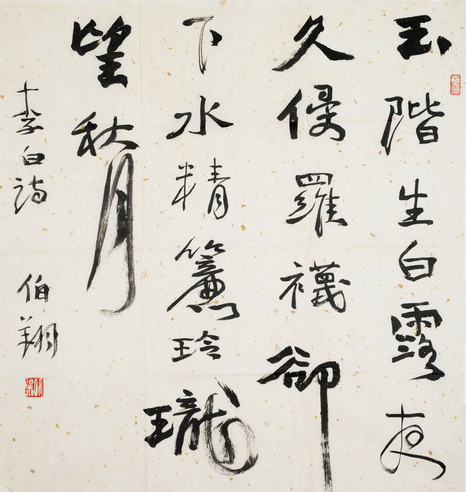 玉階生白露夜
久侵羅襪卻
下水精簾玲瓏
望秋月
李白詩 伯翔